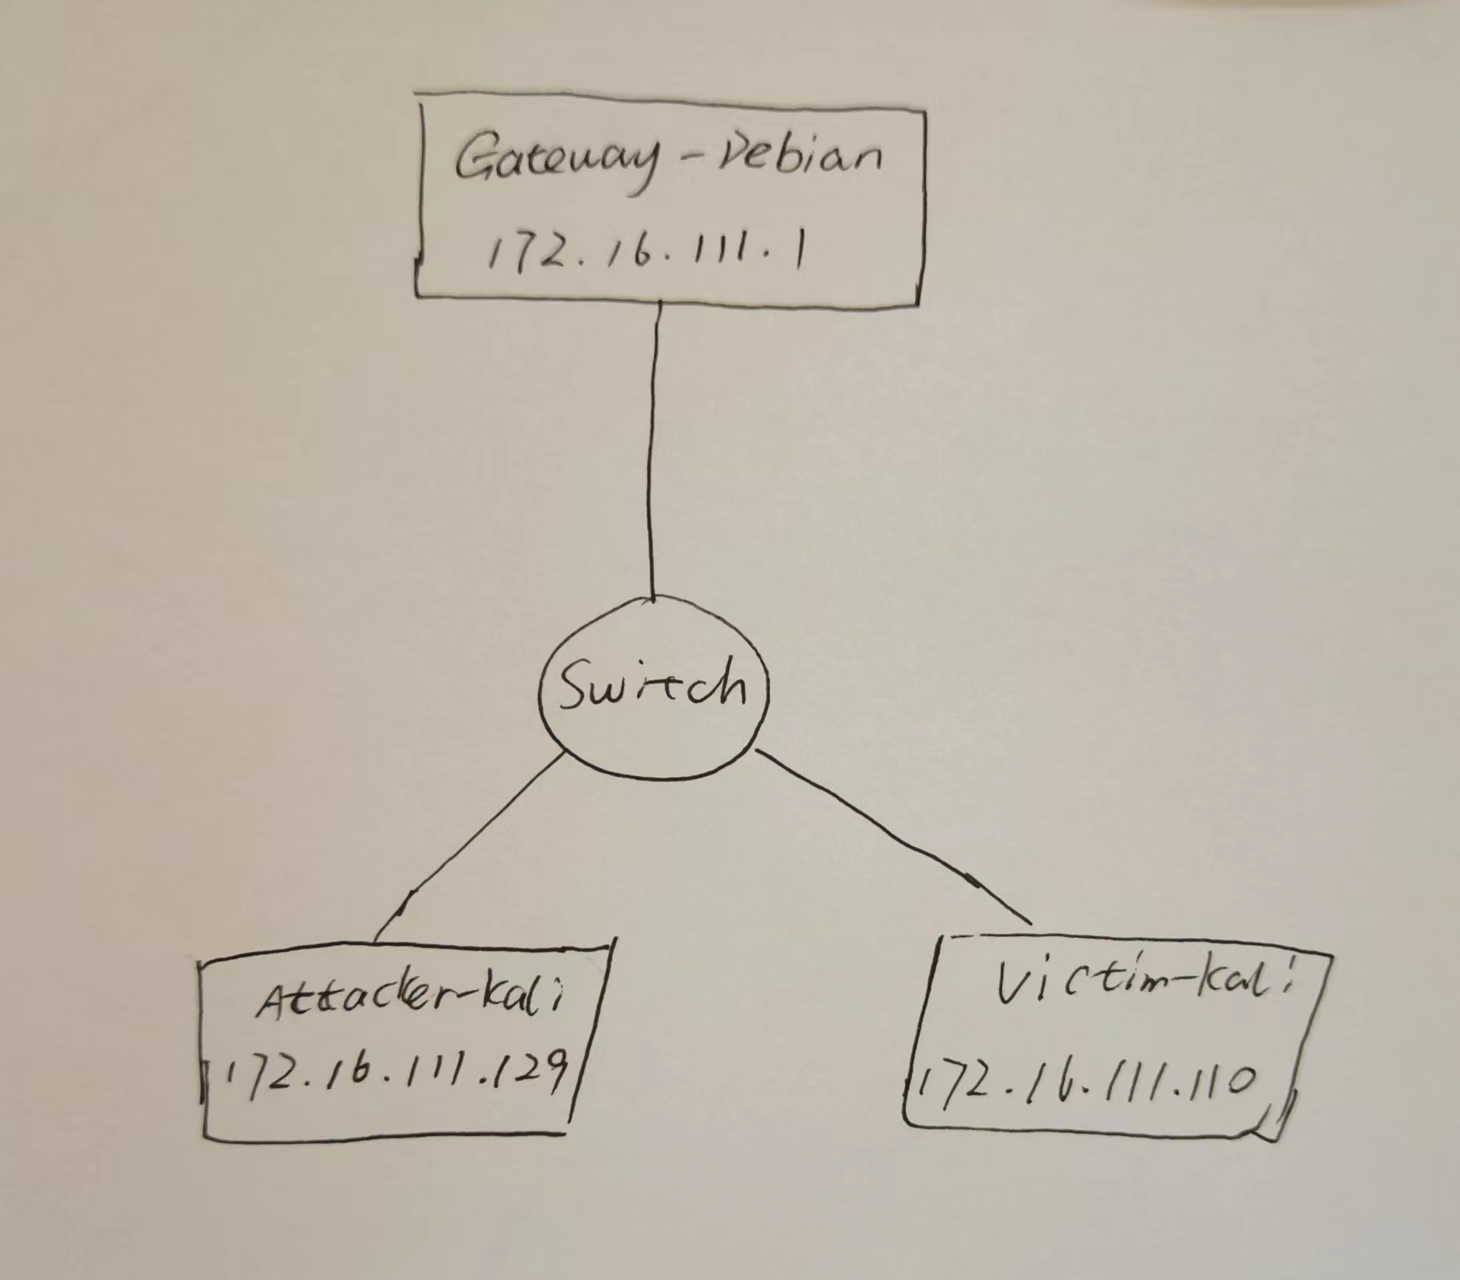 Gateway-Debian
172.16.111.1
Switch
Attacker-kali
172.16.111.129
Victim-kali
172.16.111.110